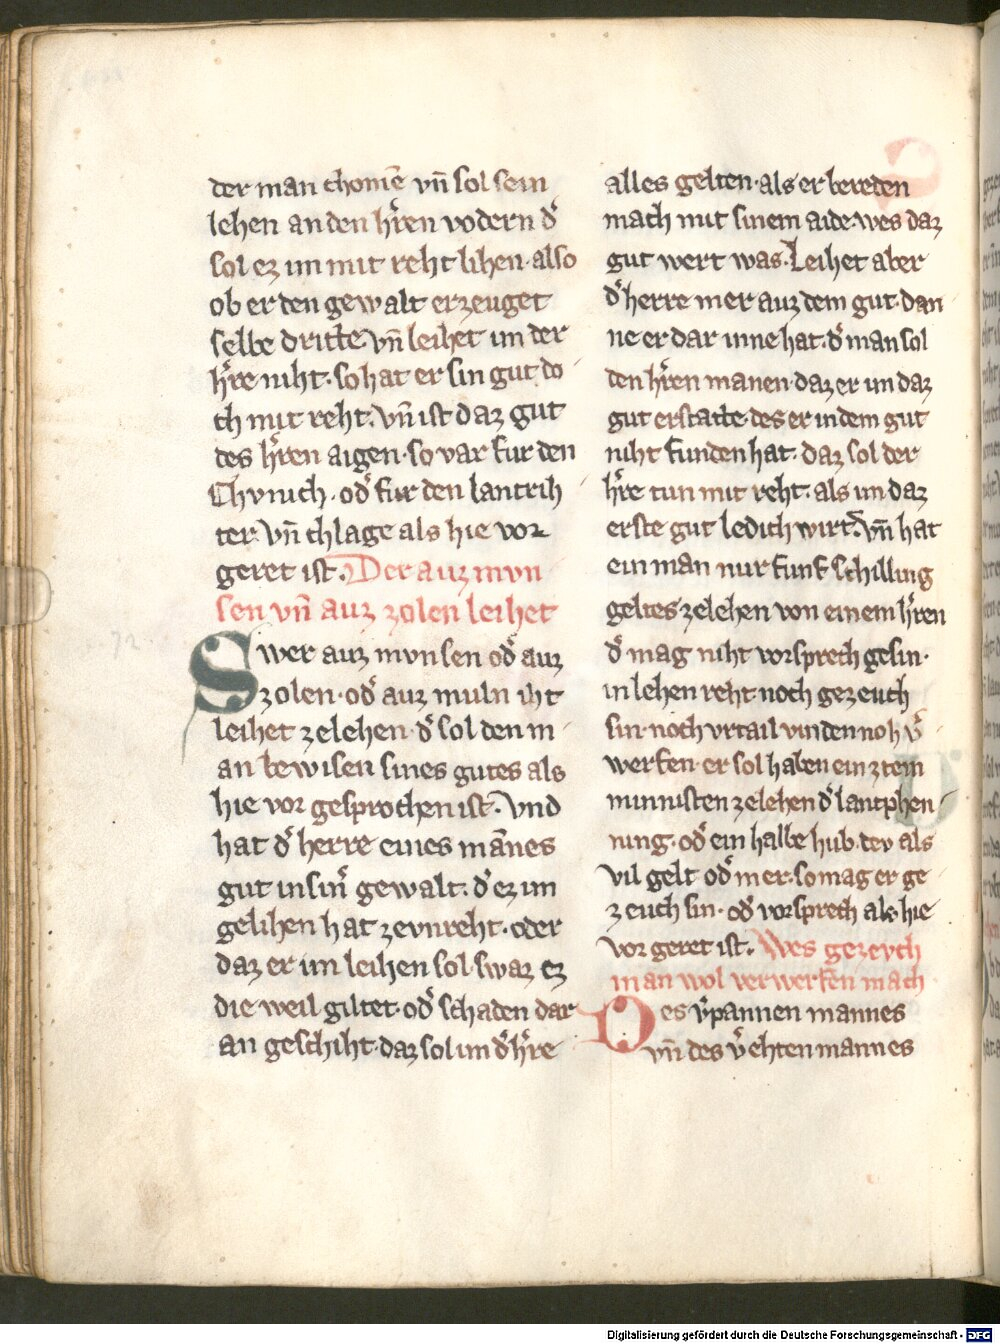 der man chomē vn̄ sol sein
lehen an den h̄ren vodern d̾
sol ez im mit reht lihen· also
ob er den gewalt erzeuget
selbe dritte vn̄ leihet im der
h̄re niht· so hat er sin gut do
ch mit reht· vn̄ ist daz gut
des h̄ren aigen· so var fur den
Chvnich· od̾ fur den lantrih
ter· vn̄ chlage als hie vor
geret ist· Der auz mvn
sen vn̄ auz zolen leihet
Swer auz mvnsen od̾ auz
zolen· od̾ auz muln iht
leihet zelehen· d̾ sol den m
an bewisen sines gutes als
hie vor gesprochen ist· Vnd
hat d̾ herre eines mānes
gut in sin̾ gewalt· d̾ ez im
gelihen hat zevnreht· oder
daz er im leihen sol· swaz ez
die weil giltet· od̾ schaden dar
an geschiht· daz sol im d̾ h̄re
alles gelten· als er bereden
mach mit sinem aide· wes daz
gut wert was· Leihet aber
d̾ herre mer auz dem gut· dan
ne er dar inne hat· d̾ man sol
den h̄ren manen· daz er im daz
gut erstatte· des er in dem gut
niht funden hat· daz sol der
h̄re tun mit reht· als im daz
erste gut ledich wirt· vn̄ hat
ein man nur funf schilling
geltes zelehen von einem h̄ren
d̾ mag niht vorsprech gesin·
in lehen reht· noch gezeuch
sin· noch vrtail vinden noh v̾
werfen· er sol haben ein ztem
minnisten zelehen d̾ lantphen
ning· od̾ ein halbe hub· tev als
vil gelt od̾ mer· so mag er ge
zeuch sin· od̾ vorsprech als hie
vor geret ist· Wes gezevch
man wol verwerfen mach
Des v̾pannen mannes
vn̄ des v̾ehten mannes
Digitalisierung gefördert durch die Deutsche Forschungsgemeinschaft - DFG